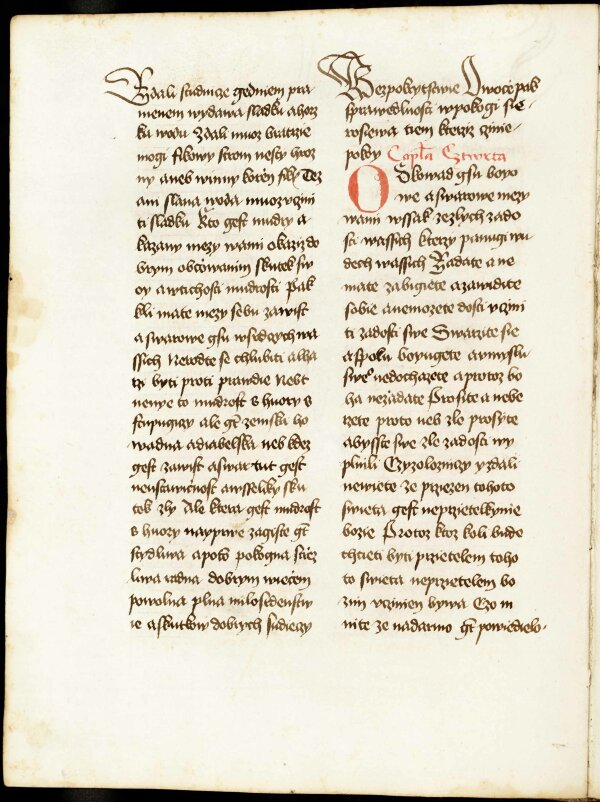 Zdali studnicze gedniem pra
menem wydawa sladku a horz
ku wodu Zdali muoz bratrzie
mogi fikowy strom nesty hroz
ny aneb winny koren fiky Tez
ani slana woda muoz vczini
ti sladku Kto gest mudry a
kazany mezy wami okazizdo
brym obcowanim skutek sw
oy a wtichosti mudrosti Pak
kli mate mezy sebu zawist
a swarowe gsu wsrdczych wa
ssich Nerodte se chlubiti a lha
rzi byti proti prawdie Nebt
nenye to mudrost s huory s
stupugiczy ale gt zemska ho
wadna a diabelska neb kdez
gest zawist a swar tut gest
neustawicnost a wsseliky sku
tek zly Ale ktera gest mudrost
s huory nayprwe zagiste gt
stydliwa apoto pokogna sstiez
liwa radna dobrym wiecem
powolna plna milosrdenstw
ie a skutkow dobrych sudieczy
Bezpokrytstwie Owocz pak
sprawedlnosti wpokogi sie
rosiewa tiem kterzi czinie
pokoy Capla Cztwrta
Odkowad gsu boyo
we a swarowe mezy
wami wssak zezlych zado
sti wassich kterzy panugi wu
dech wassich Zadate a ne
mate zabigiete a zawidite
sobie a nemozete dosti vczini
ti zadosti swe Swarzite sie
a spolu boyugete a vmyslu
swe nedochazete a protoz bo
ha nezadate Prosite a nebe
rzete proto neb zle prosyte
abysste swe zle zadosti wy
plnili Czyzoloznizy y zdali
newiete ze przezen tohoto
swieta gest neprzietelkynie
bozie Protoz ktoz koli bude
chtieti byti przietelem toho
to swieta neprzietelem bo
zim vczinien bywa Czo m
nite ze nadarmo gt powiedielo